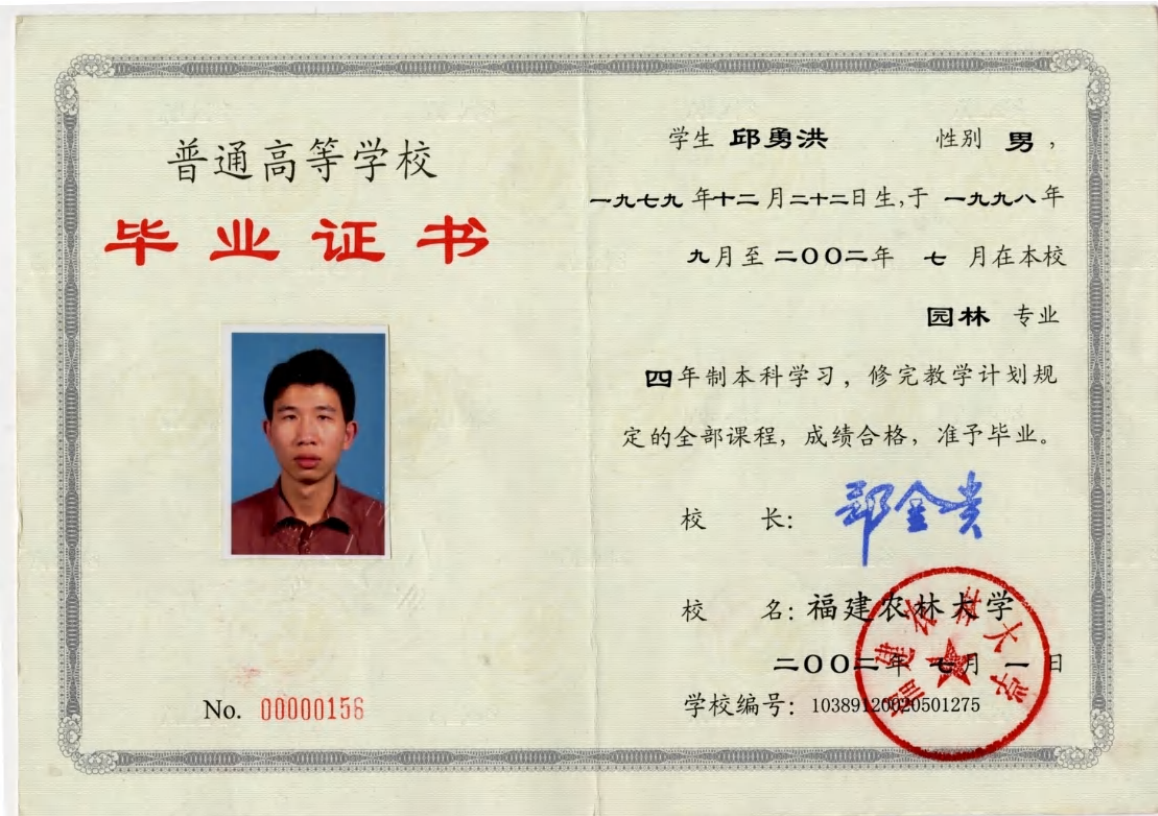 普通高等学校
毕业证书
No. 00000156
学生 邱勇洪 性别 男，
一九七九年十二月二十二日生,于 一九九八年
九月至 二〇〇二年 七 月在本校
园林 专业
四年制本科学习，修完教学计划规
定的全部课程，成绩合格，准予毕业。
校 长：
校 名：福建农林大学
二〇〇二年 七月 一 日
学校编号：10389120020501275
福建农林大学